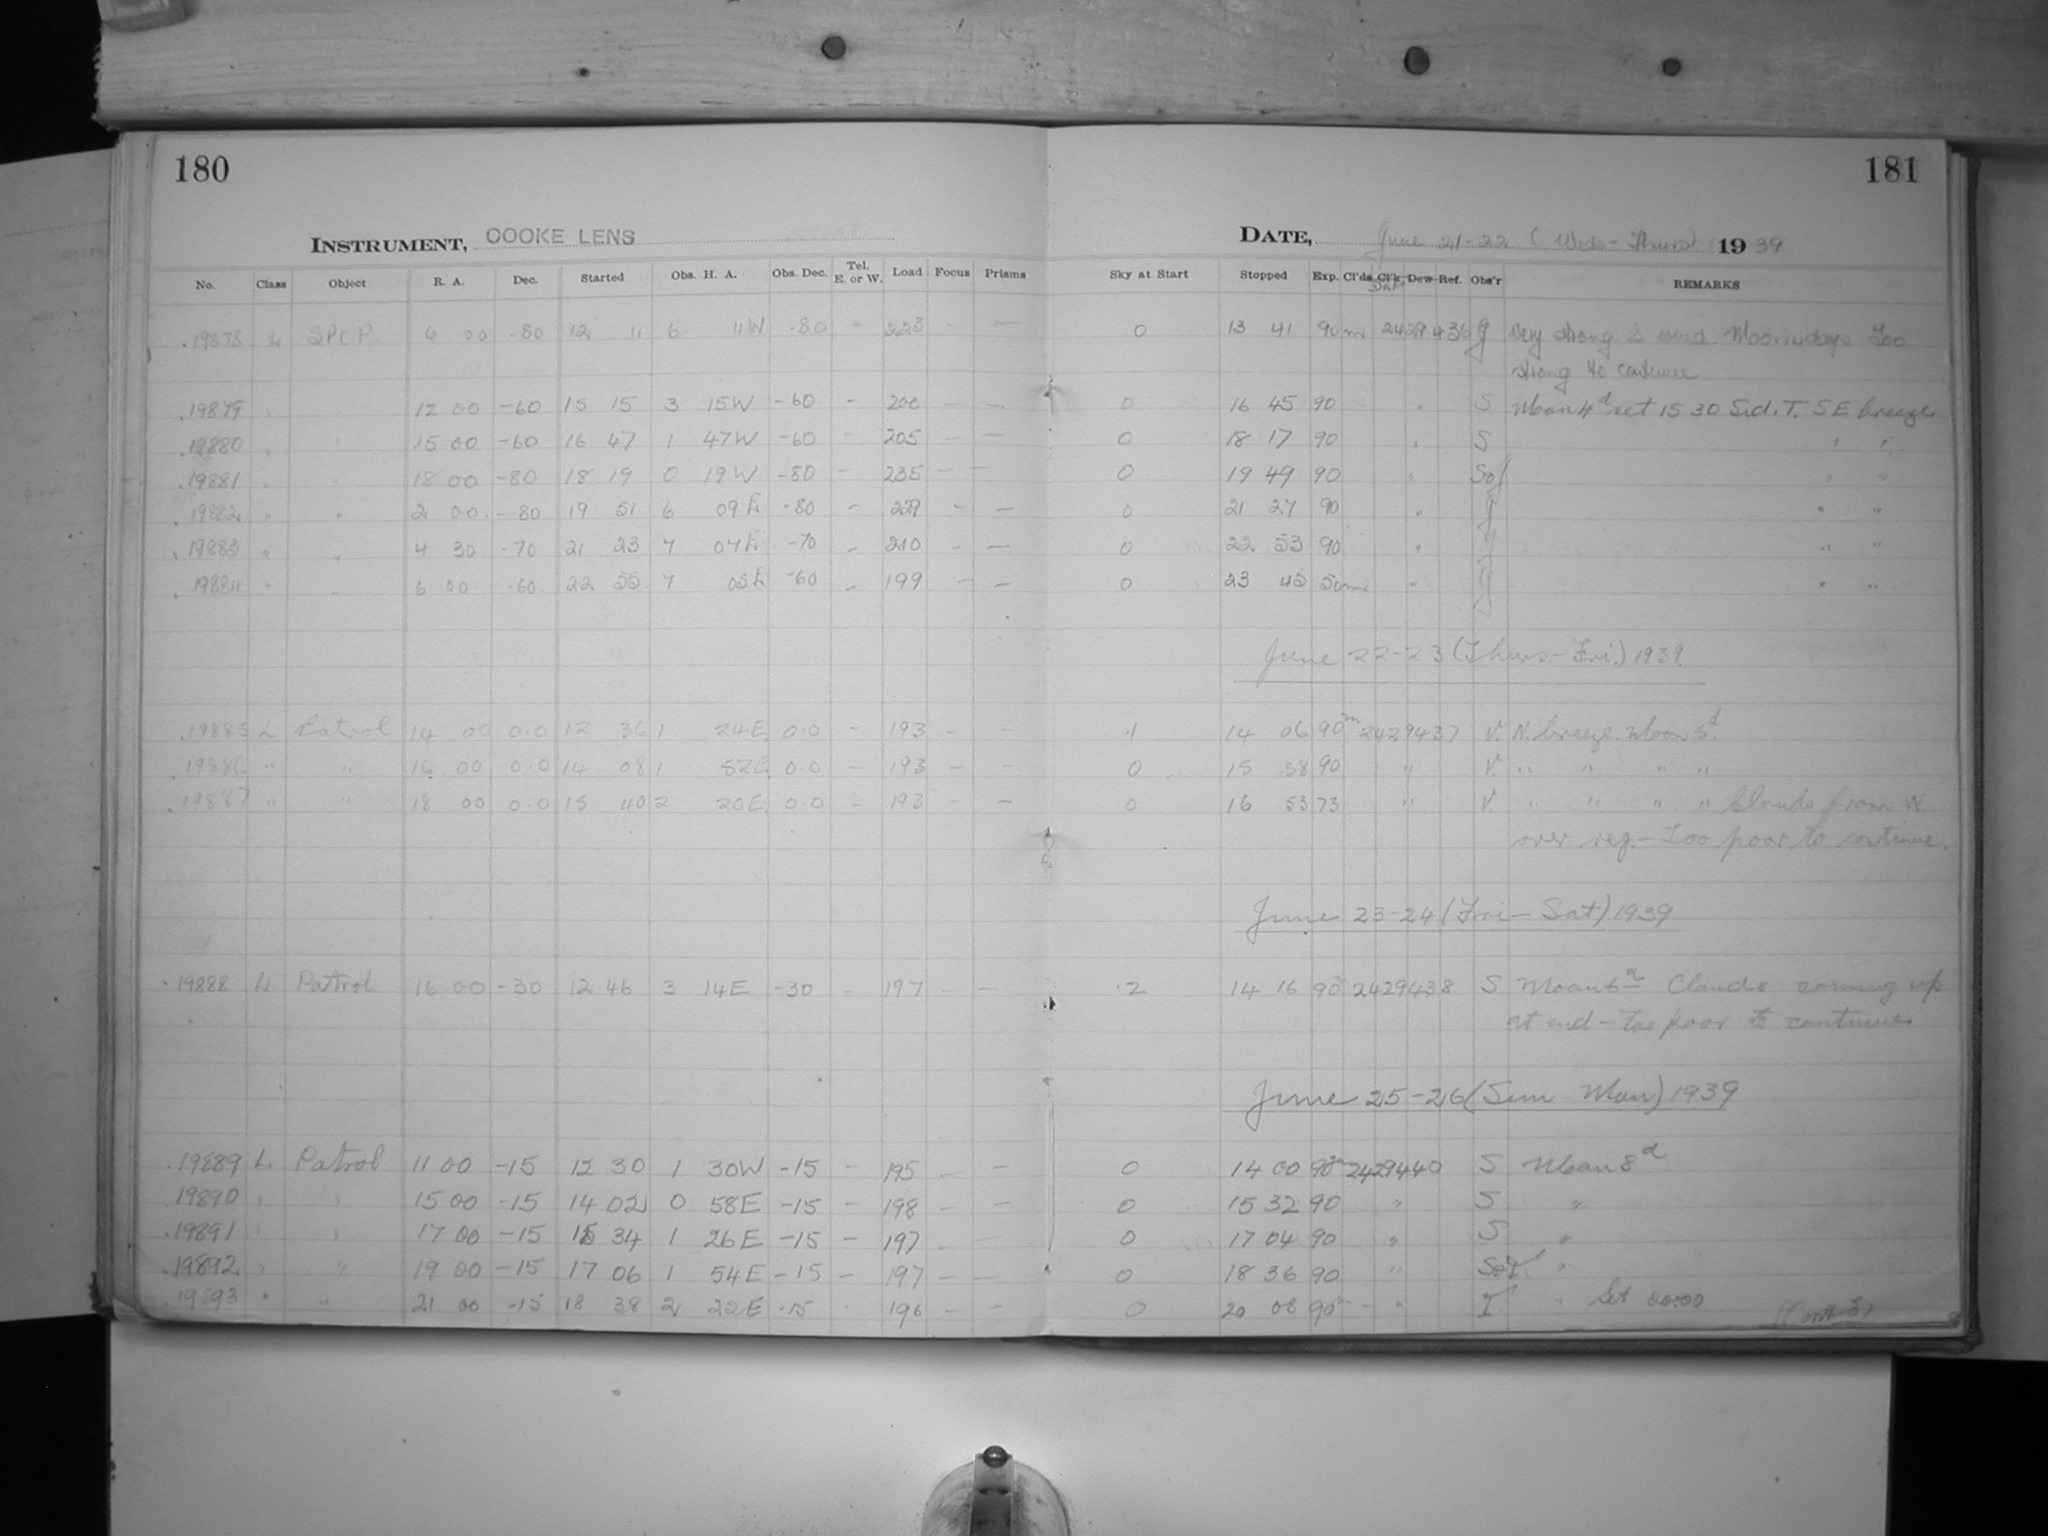 180
181
INSTRUMENT, COOKE LENS
DATE, June 21-22 (Weds-Thurs) 1939
No. Class Object R. A. Dec. Started Obs. H. A. Obs. Dec. Tel. E. or W. Load Focus Prisms Sky at Start Stopped Exp. Cl'ds Cl'k Dew Ref. Obs'r REMARKS
19878 L SPCP 6 00 -80 12 11 6 11W -80 - 223 - - 0 13 41 90m 2429436 Very strong S wind. Moon 4 days Too
strong to continue
19879 " " 12 00 -60 15 15 3 15W -60 - 200 - - 0 16 45 90 " S Moon 4d set 15 30 Sid. T. SE breeze
19880 " " 15 00 -60 16 47 1 47W -60 - 205 - - 0 18 17 90 " S " "
19881 " " 18 00 -80 18 19 0 19W -80 - 235 - - 0 19 49 90 " " "
19882 " " 2 00 -80 19 51 6 09E -80 - 229 - - 0 21 27 90 " " "
19883 " " 4 30 -70 21 23 7 07E -70 - 210 - - 0 22 53 90 " " "
19884 " " 6 00 -60 22 55 7 05E -60 - 199 - - 0 23 45 50m " " "
June 22-23 (Thurs-Fri.) 1939.
19885 L Patrol 14 00 0.0 12 36 1 24E 0.0 - 193 - - .1 14 06 90m 2429437 V. N. breeze. Moon 5d.
19886 " " 16 00 0.0 14 08 1 52E 0.0 - 193 - - 0 15 38 90 " V. " " " "
19887 " " 18 00 0.0 15 40 2 20E 0.0 - 193 - - 0 16 53 73 " V. " " " " Clouds from W
over reg. - Too poor to continue.
June 23-24 (Fri-Sat) 1939
19888 L Patrol 16 00 -30 12 46 3 14E -30 - 197 - - .2 14 16 90 2429438 S Moon 6d Clouds coming up
at end - too poor to continue
June 25-26 (Sun Mon) 1939
19889 L Patrol 11 00 -15 12 30 1 30W -15 - 195 - - 0 14 00 90m 2429440 S Moon 8d
19890 " " 15 00 -15 14 02 0 58E -15 - 198 - - 0 15 32 90 " S "
19891 " " 17 00 -15 15 34 1 26E -15 - 197 - - 0 17 04 90 " S "
19892 " " 19 00 -15 17 06 1 54E -15 - 197 - - 0 18 36 90 " "
19893 " " 21 00 -15 18 38 2 22E -15 - 196 - - 0 20 08 90m " " Set 20:00
(Cont'd)